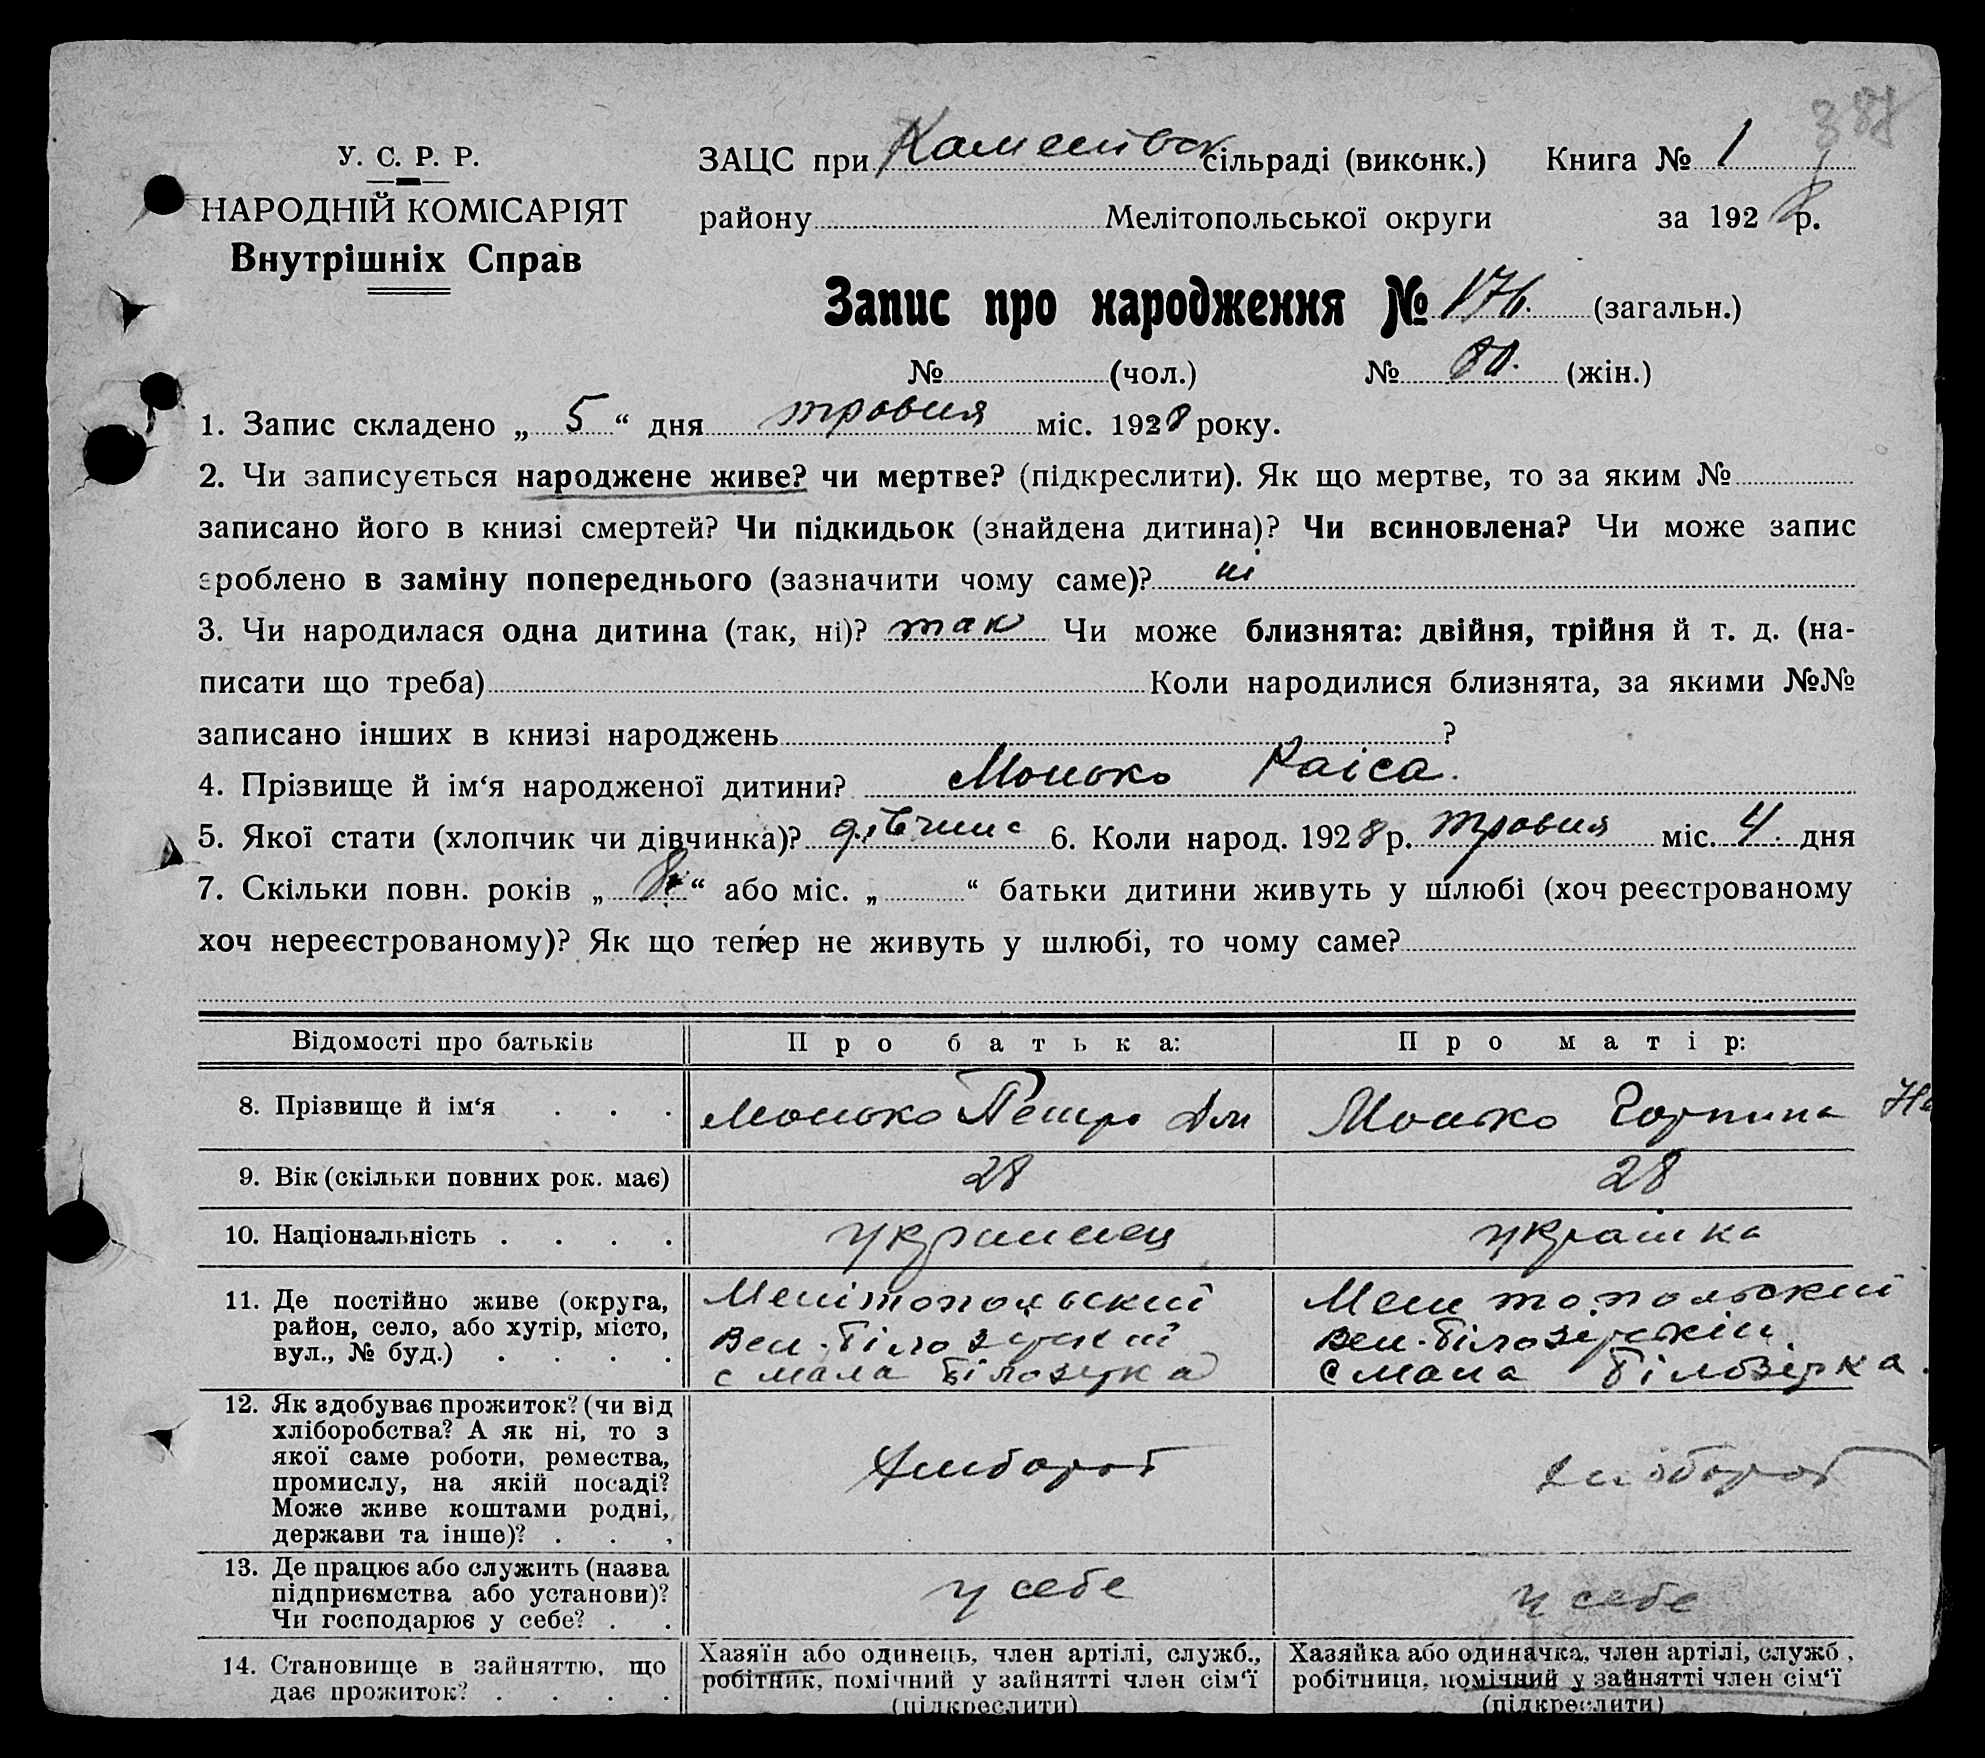 388
У. С. Р. Р.
НАРОДНІЙ КОМІСАРІЯТ
Внутрішніх Справ
ЗАЦС при Каменівск сільраді (виконк.) Книга № 1
району Мелітопольської округи за 1928 р.
Запис про народження № 176. (загальн.)
№ (чол.) № 80. (жін.)
1. Запис складено „ 5 “ дня травня міс. 1928 року.
2. Чи записується народжене живе? чи мертве? (підкреслити). Як що мертве, то за яким №
записано його в книзі смертей? Чи підкидьок (знайдена дитина)? Чи всиновлена? Чи може запис
зроблено в заміну попереднього (зазначити чому саме)? ні
3. Чи народилася одна дитина (так, ні)? так Чи може близнята: двійня, трійня й т. д. (на-
писати що треба) Коли народилися близнята, за якими №№
записано інших в книзі народжень ?
4. Прізвище й ім‘я народженої дитини? Монько Раіса.
5. Якої стати (хлопчик чи дівчинка)? дівчинс 6. Коли народ. 1928 р. травня міс. 4 дня
7. Скільки повн. років „ 8 “ або міс. „ “ батьки дитини живуть у шлюбі (хоч реєстрованому
хоч нереєстрованому)? Як що тепер не живуть у шлюбі, то чому саме?
Відомості про батьків Про батька: Про матір:
8. Прізвище й ім‘я Монько Петро Дм Монько Горпина На
9. Вік (скільки повних рок. має) 28 28
10. Національність украинец украінка
11. Де постійно живе (округа, Мелітопольский Мелитопольский
район, село, або хутір, місто, Вел-Білозірский Вел-Білозірскій
вул., № буд.) с мала Білозірка с Мала Білозірка.
12. Як здобуває прожиток? (чи від
хліборобства? А як ні, то з
якої саме роботи, ремества, хлібороб хлібороб
промислу, на якій посаді?
Може живе коштами родні,
держави та інше)?
13. Де працює або служить (назва
підприємства або установи)? у себе у себе
Чи господарює у себе?
14. Становище в зайняттю, що Хазяїн або одинець, член артілі, служб., Хазяйка або одиначка, член артілі, служб.,
дає прожиток? робітник, помічний у зайнятті член сім‘ї робітниця, помічний у зайнятті член сім‘ї
(підкреслити) (підкреслити)